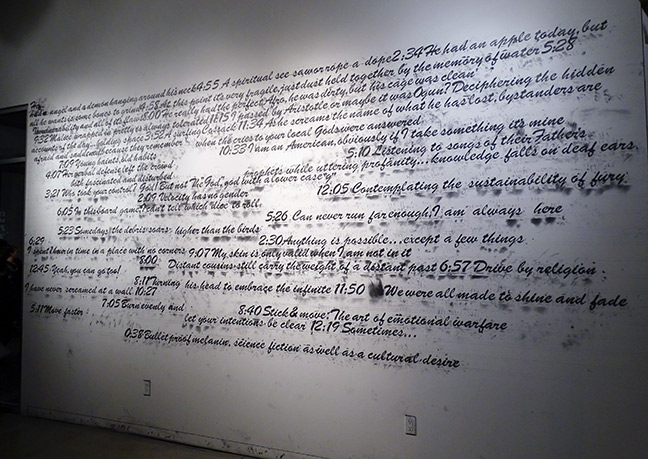 an angel and a demon hanging around his neck 4:55 A spiritual see saw or rope a dope 2:34 He had an apple today, but
all he wants is some bones to grind 4:58 At this point it's very fragile, just dust held together by the memory of water 5:28
and all of its flaws 8:00 He really had the perfect Afro, he was dirty, but his cage was clean
in pretty is always 16:15 I passed by Aristotle or maybe it was Ogun? Deciphering the hidden
of the day... 11:36 As he screams the name of what he has lost, bystanders are
afraid they remember when the cries to your local Gods were answered
7:03 Young bained old habits 10:33 I am an American, obviously if I take something it's mine
4:07 Her verbal defects left the crowd 5:10 Listening to songs of their Fathers
both fascinated and disturbed prophets while uttering profanity... knowledge falls on deaf ears
3:21 Who took your control? God! But not the "God", god with a lower case "g"
2:09 Velocity has no gender 12:05 Contemplating the sustainability of fury
6:05 In this board game, I can't tell which dice to roll
5:26 Can never run far enough, I am always here
5:23 Somedays the debris soars higher than the birds
6:29 2:30 Anything is possible... except a few things
I spent 1 hour in time in a place with no corners 9:07 My skin is only valid when I am not in it
8:00 Distant cousins still carry the weight of a distant past 6:57 Drive by religion
12:45 Yeah, you can go too!
8:11 Turning his head to embrace the infinite 11:50 We were all made to shine and fade
I have never screamed at a wall 10:27
7:05 Burn evenly and 8:40 Stick & move: The art of emotional warfare
5:11 Move faster let your intentions be clear 12:19 Sometimes...
0:38 Bullet proof melanin, science fiction as well as a cultural desire